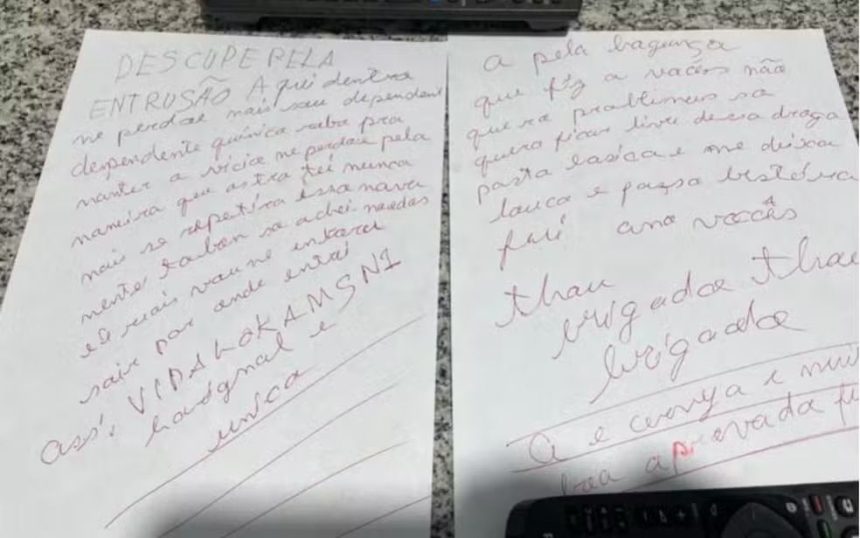 DESCUPE PELA
ENTRUSÃO Aqui dentro
me perdoe mais sou dependent
dependente química roba pra
manter o vicio me perdou pela
maneira que astra fei nunca
mais se repetira essa nova
mente tanben so achei moedas
e mais vou me enbora
sair por onde entrei
ass: VIDALOKAMSN1
horignal e
unica
a pela bagunça
que fiz a vocês não
quero problemas so
quero ficar livre dessa droga
pasta basica e me deixa
louca e passo
fui amo vocês
thau
brigadoa thau
brigadoa
A e cerveja e mui
boa aprovada fu